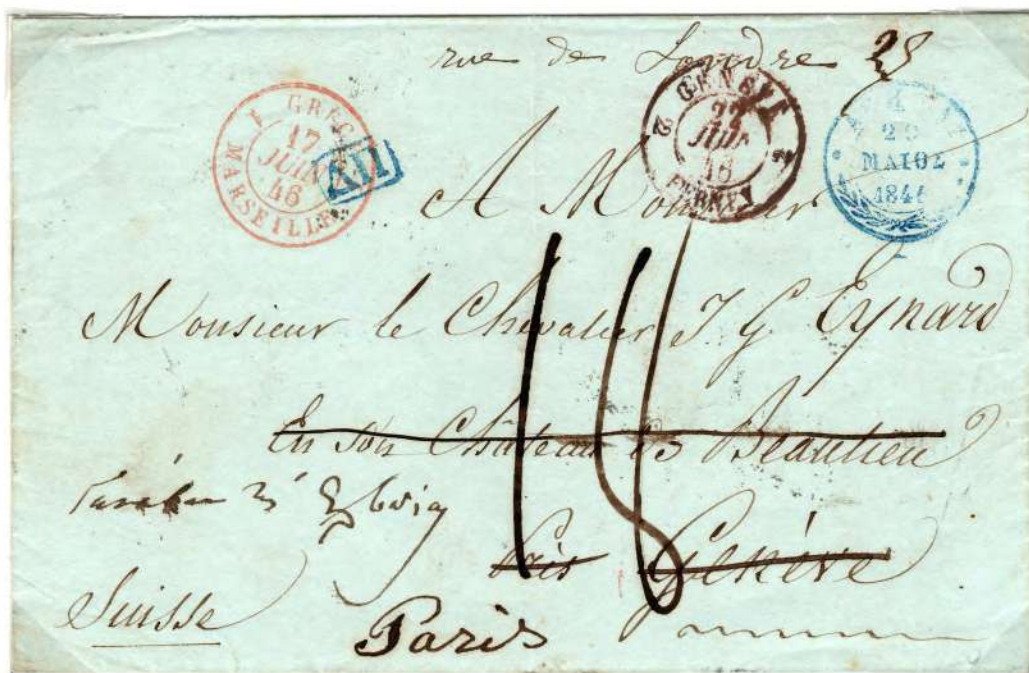 rue de Londre 28
1 GREC
17
JUIN
46
MARSEILLE
2 GENÈVE 2
22
JUIN
46
FERNEY
MAIOΣ
1846
A Monsieur
Monsieur le Chevalier J G Eynard
En son Château de Beaulieu
près Genève
Suisse
Paris